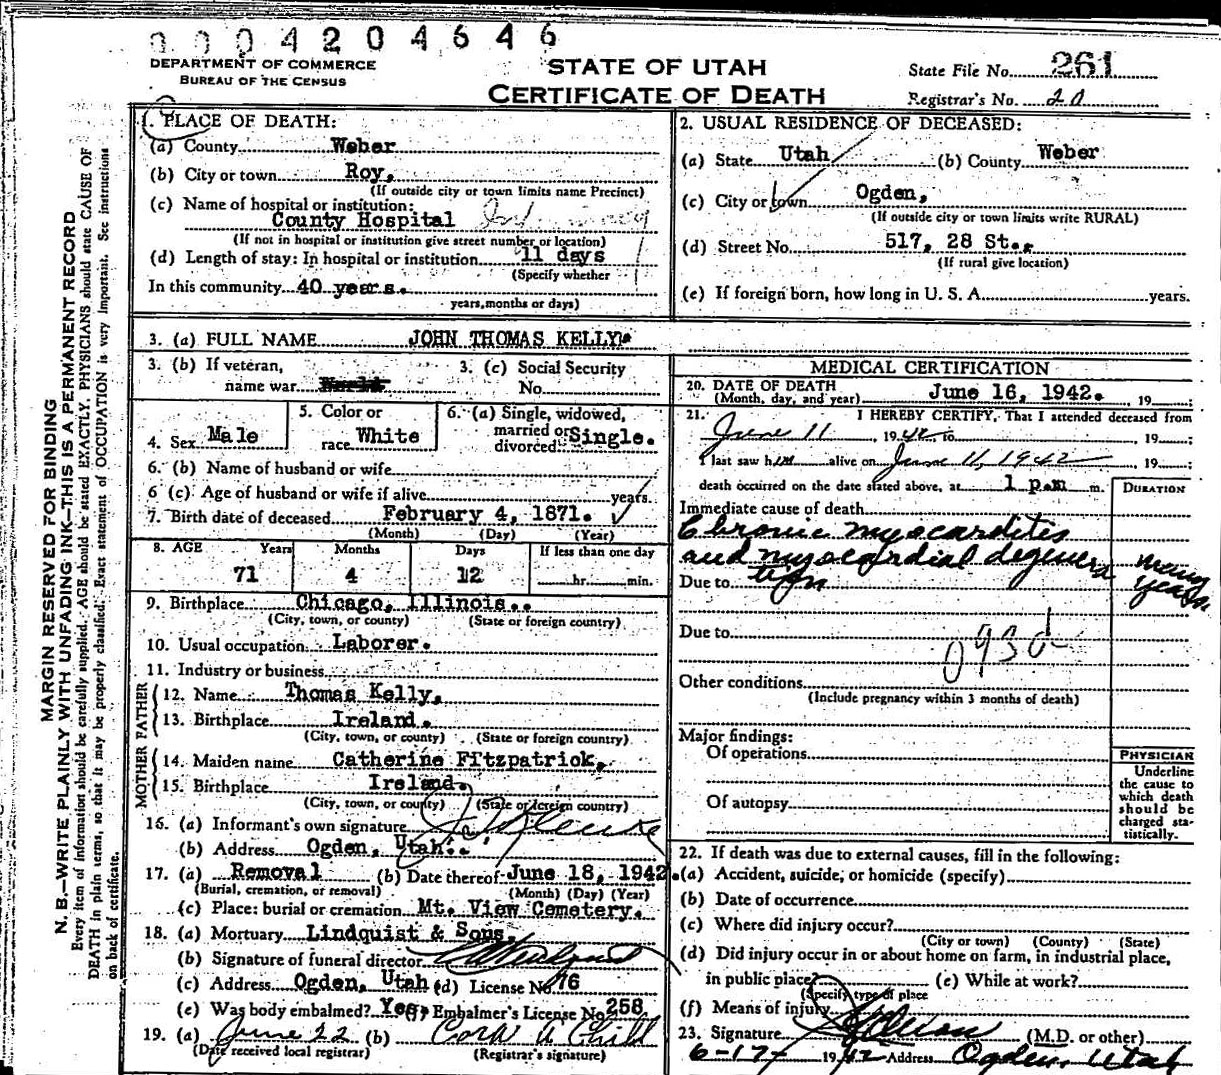 0004204646
DEPARTMENT OF COMMERCE
BUREAU OF THE CENSUS
STATE OF UTAH
CERTIFICATE OF DEATH
State File No. 261
Registrar's No. 20
MARGIN RESERVED FOR BINDING
N. B.—WRITE PLAINLY WITH UNFADING INK—THIS IS A PERMANENT RECORD
Every item of information should be carefully supplied. AGE should be stated EXACTLY. PHYSICIANS should state CAUSE OF
DEATH in plain terms, so that it may be properly classified. Exact statement of OCCUPATION is very important. See instructions
on back of certificate.
1. PLACE OF DEATH:
(a) County Weber
(b) City or town Roy,
(If outside city or town limits name Precinct)
(c) Name of hospital or institution:
County Hospital
(If not in hospital or institution give street number or location)
(d) Length of stay: In hospital or institution 11 days
(Specify whether
In this community 40 years.
years, months or days)
2. USUAL RESIDENCE OF DECEASED:
(a) State Utah (b) County Weber
(c) City or town Ogden,
(If outside city or town limits write RURAL)
(d) Street No. 517, 28 St.,
(If rural give location)
(e) If foreign born, how long in U. S. A. years.
3. (a) FULL NAME JOHN THOMAS KELLY.
3. (b) If veteran,
name war
3. (c) Social Security
No.
4. Sex Male
5. Color or
race White
6. (a) Single, widowed,
married or
divorced Single.
6. (b) Name of husband or wife
6 (c) Age of husband or wife if alive years.
7. Birth date of deceased February 4, 1871.
(Month) (Day) (Year)
8. AGE Years Months Days If less than one day
71 4 12 hr. min.
9. Birthplace Chicago, Illinois..
(City, town, or county) (State or foreign country)
10. Usual occupation Laborer.
11. Industry or business
FATHER
12. Name Thomas Kelly,
13. Birthplace Ireland.
(City, town, or county) (State or foreign country)
MOTHER
14. Maiden name Catherine Fitzpatrick,
15. Birthplace Ireland.
(City, town, or county) (State or foreign country)
16. (a) Informant's own signature
(b) Address Ogden, Utah.
17. (a) Removal (b) Date thereof June 18, 1942.
(Burial, cremation, or removal) (Month) (Day) (Year)
(c) Place: burial or cremation Mt. View Cemetery.
18. (a) Mortuary Lindquist & Sons,
(b) Signature of funeral director
(c) Address Ogden, Utah (d) License No. 76
(e) Was body embalmed? Yes. (f) Embalmer's License No. 258
19. (a) June 22 (b) Cora A Child
(Date received local registrar) (Registrar's signature)
MEDICAL CERTIFICATION
20. DATE OF DEATH
(Month, day, and year) June 16, 1942. , 19 ;
21. I HEREBY CERTIFY, That I attended deceased from
June 11, 1942 to , 19 ;
I last saw him alive on June 11, 1942, 19 ;
death occurred on the date stated above, at 1 p.m m.
DURATION
Immediate cause of death
Chronic myocardites
and myocardial degenera
tion
many
years
Due to
Due to
093d
Other conditions
(Include pregnancy within 3 months of death)
Major findings:
Of operations
Of autopsy
PHYSICIAN
Underline
the cause to
which death
should be
charged sta-
tistically.
22. If death was due to external causes, fill in the following:
(a) Accident, suicide, or homicide (specify)
(b) Date of occurrence
(c) Where did injury occur?
(City or town) (County) (State)
(d) Did injury occur in or about home on farm, in industrial place,
in public place? (e) While at work?
(Specify type of place
(f) Means of injury
23. Signature (M.D. or other)
6-17- 1942 Address Ogden, Utah